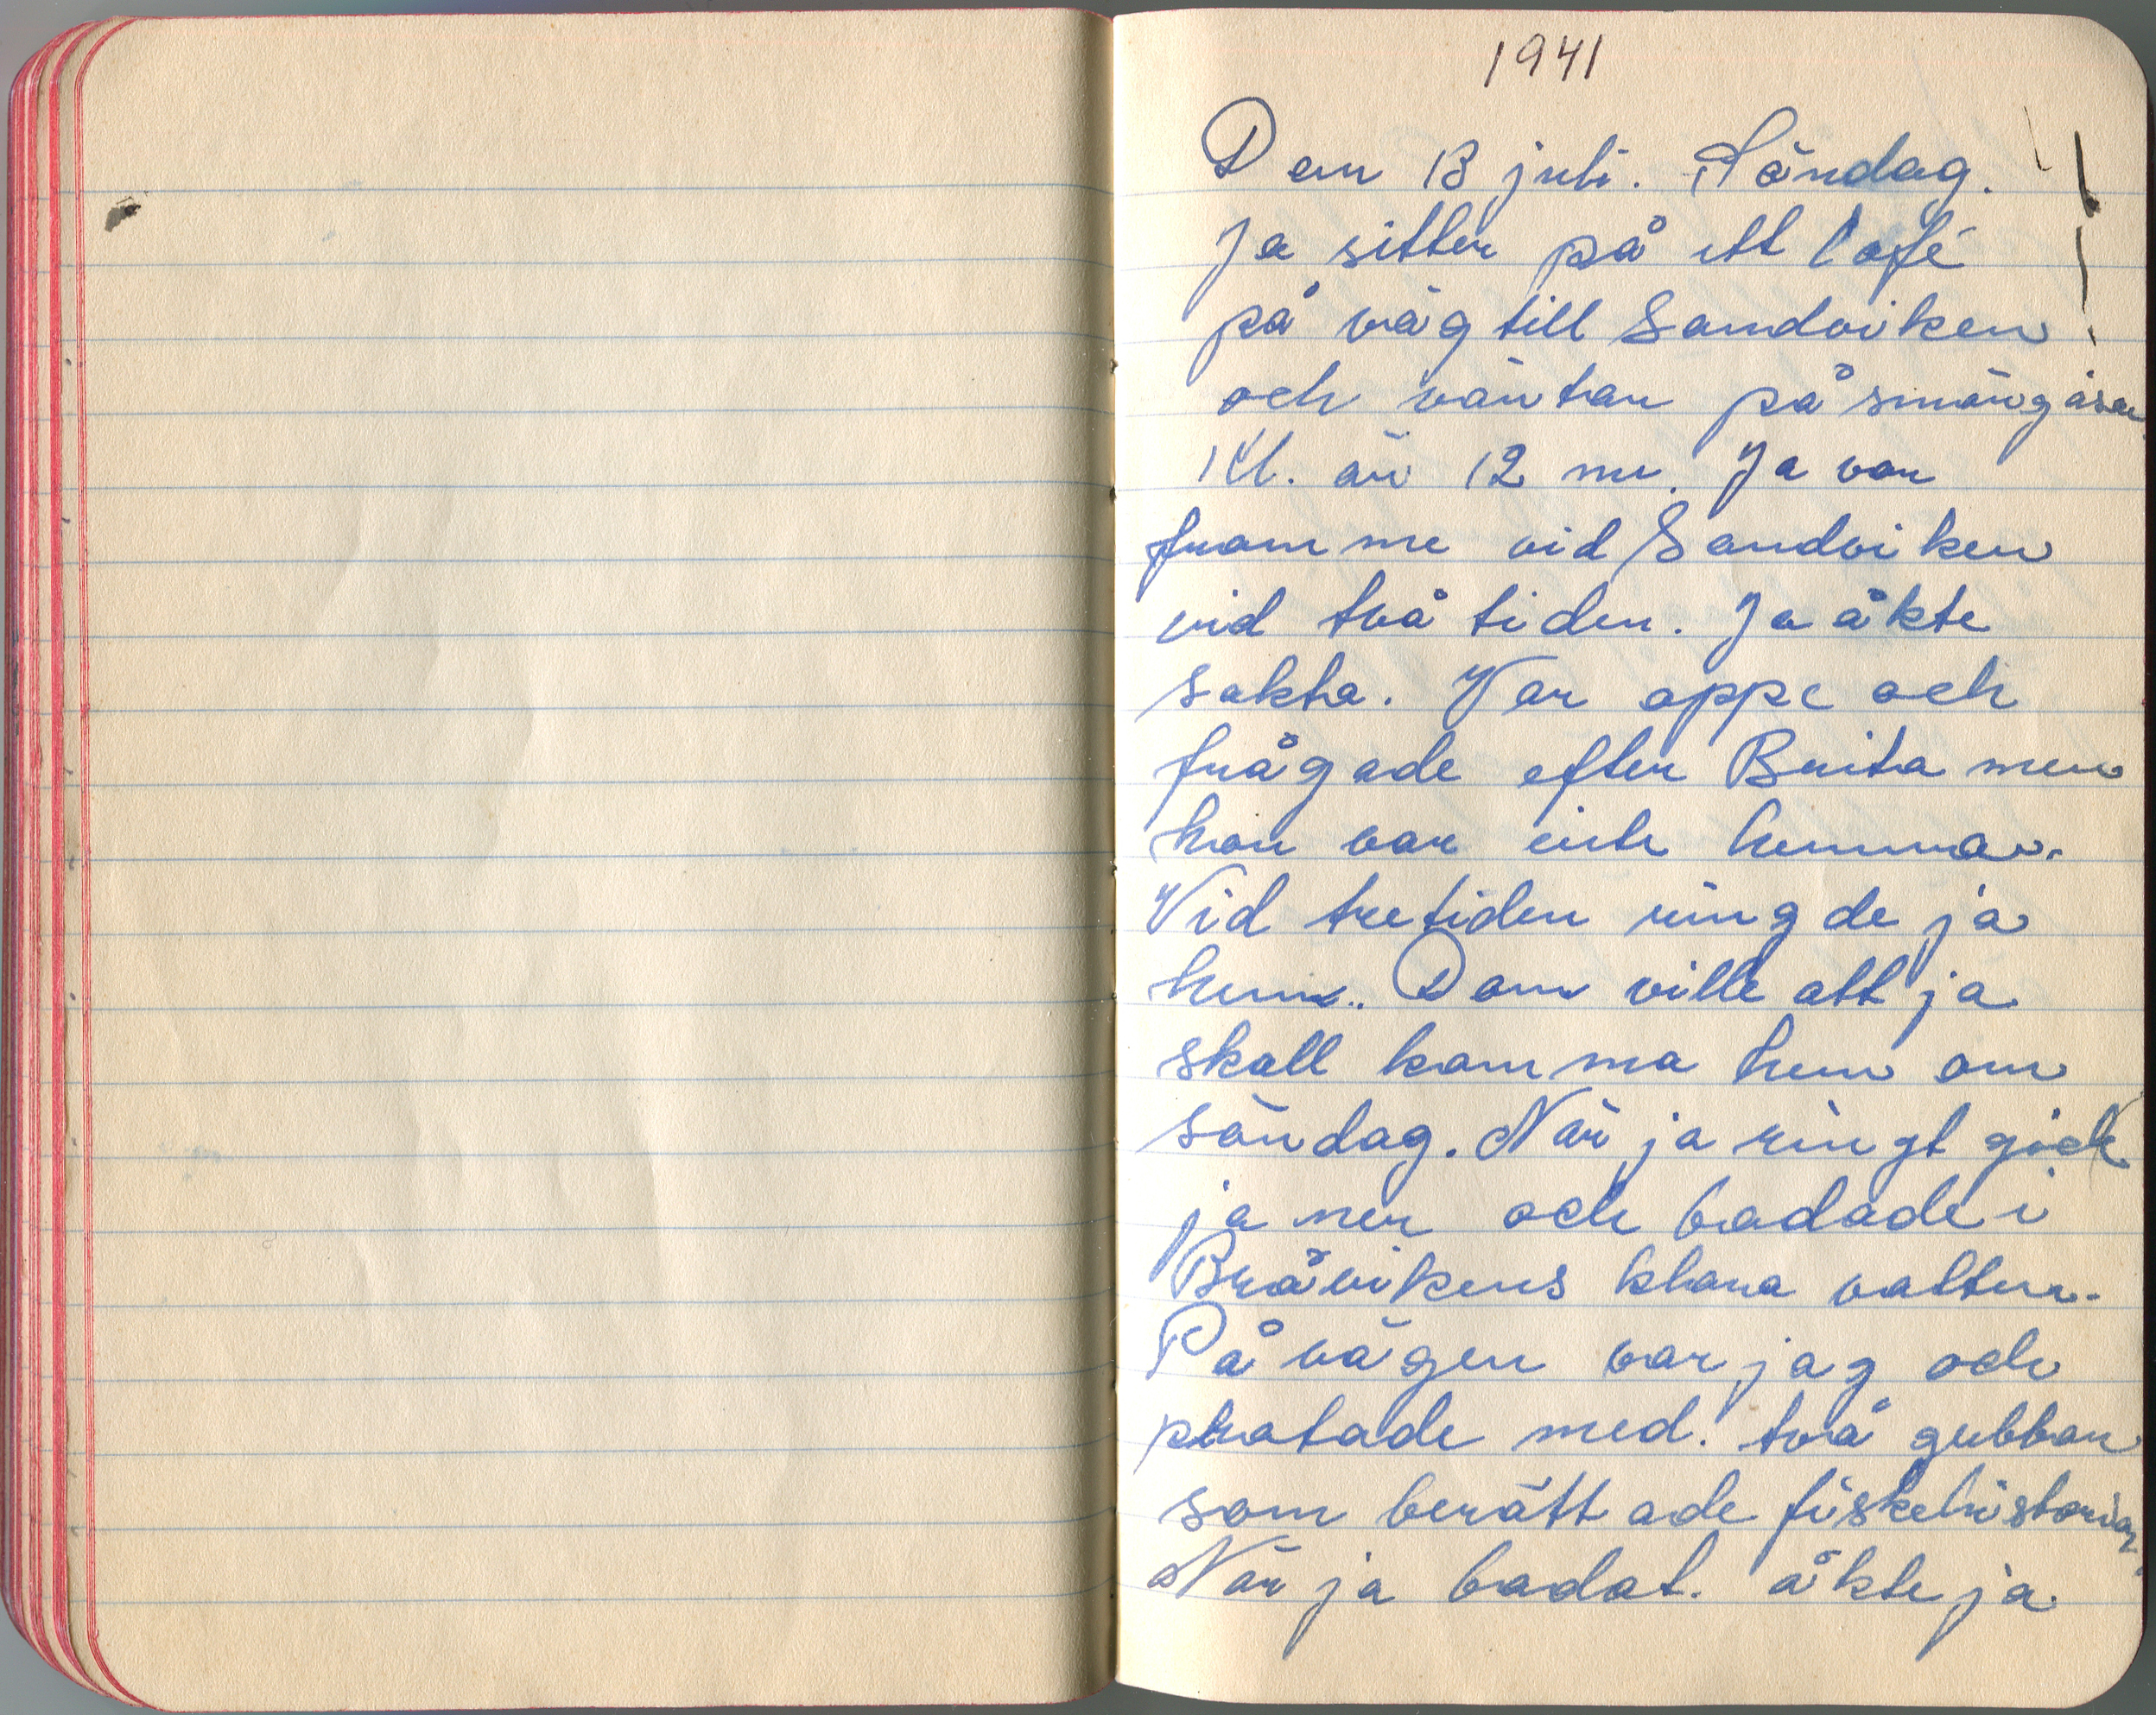 1941
Den 13 juli. Söndag.
Ja sitter på ett Café
på väg till Sandviken
och väntar på smörgåsar.
Kl. är 12 nu. Ja var
framme vid Sandviken
vid två tiden. Ja åkte
sakta. Var oppe och
frågade efter Brita men
hon var inte hemma.
Vid tretiden ringde ja
hem. Dom ville att ja
skall komma hem om
söndag. När ja ringt gick
ja ner och badade i
Bråvikens klara vatten.
På vägen var jag och
pratade med. två gubbar
som berättade fiskehistorier.
När ja badat. åkte ja